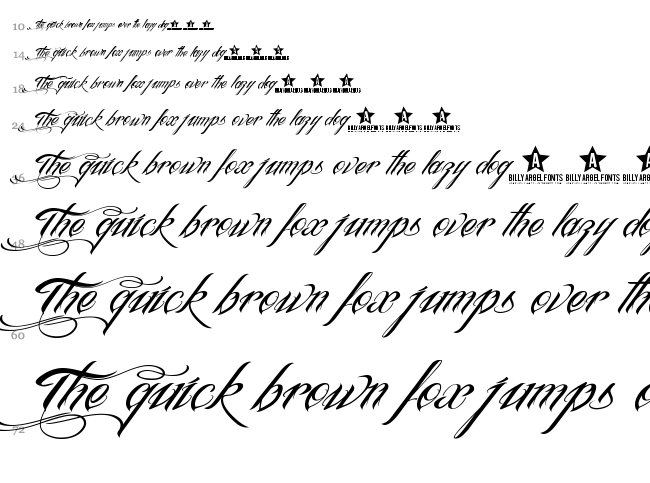 10 The quick brown fox jumps over the lazy dog
14 The quick brown fox jumps over the lazy dog
18 The quick brown fox jumps over the lazy dog
24 The quick brown fox jumps over the lazy dog BILLY ARGEL FONTS BILLY ARGEL FONTS BILLY ARGEL FONTS
36 The quick brown fox jumps over the lazy dog A A A BILLY ARGEL FONTS BILLY ARGEL FONTS BILLY ARGEL FONTS
48 The quick brown fox jumps over the lazy do
60 The quick brown fox jumps over th
72 The quick brown fox jumps o